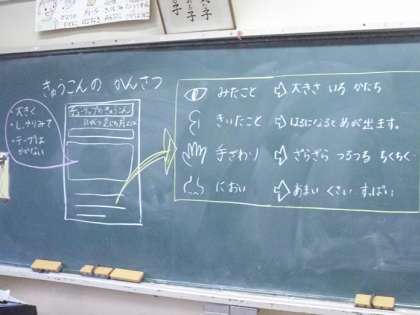 きゅうこんの かんさつ
・大きく
・しっかりみて
・テープは
かかない
チューリップのきゅうこん
みたこと ⇨ 大きさ いろ かたち
きいたこと ⇨ はるになるとめが出ます。
手ざわり ⇨ ざらざら つるつる ちくちく
におい ⇨ あまい くさい すっぱい